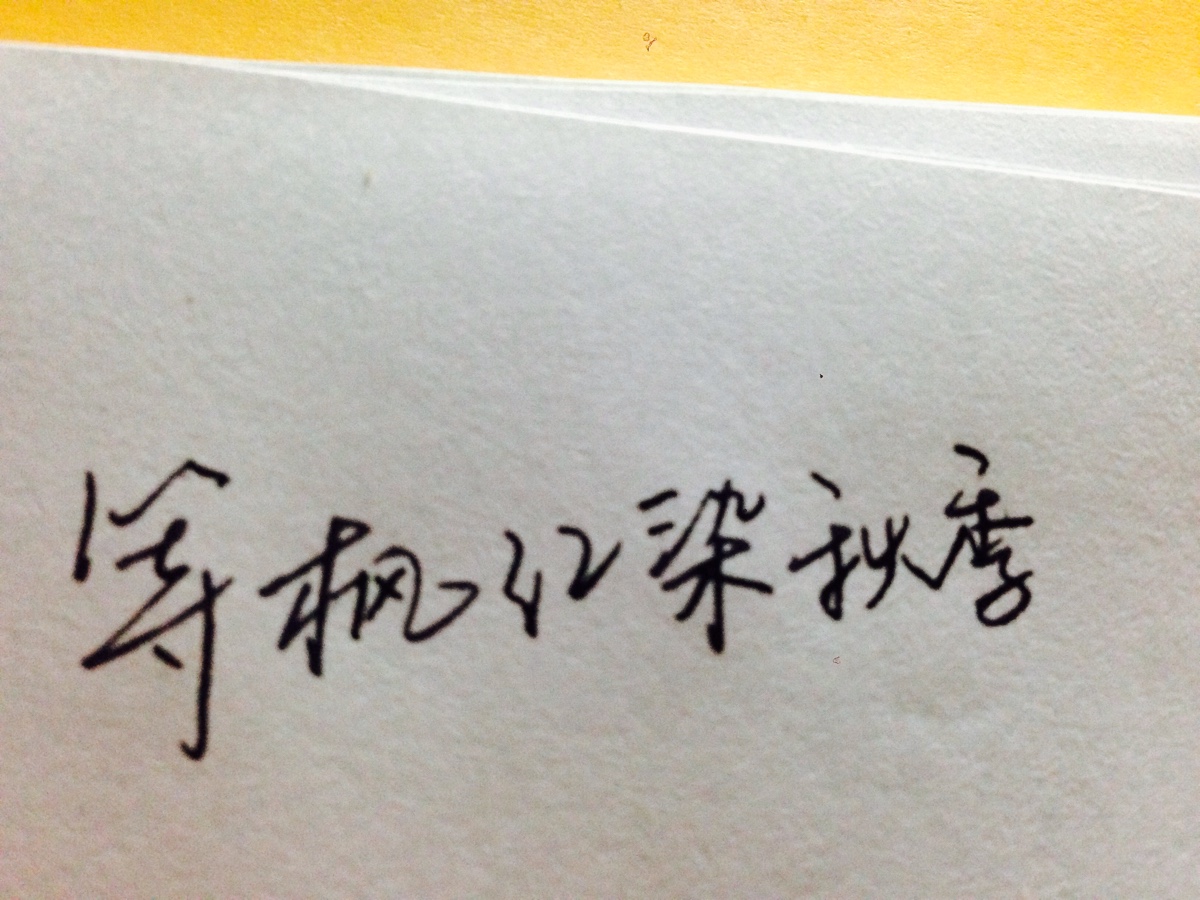 等枫红染秋季